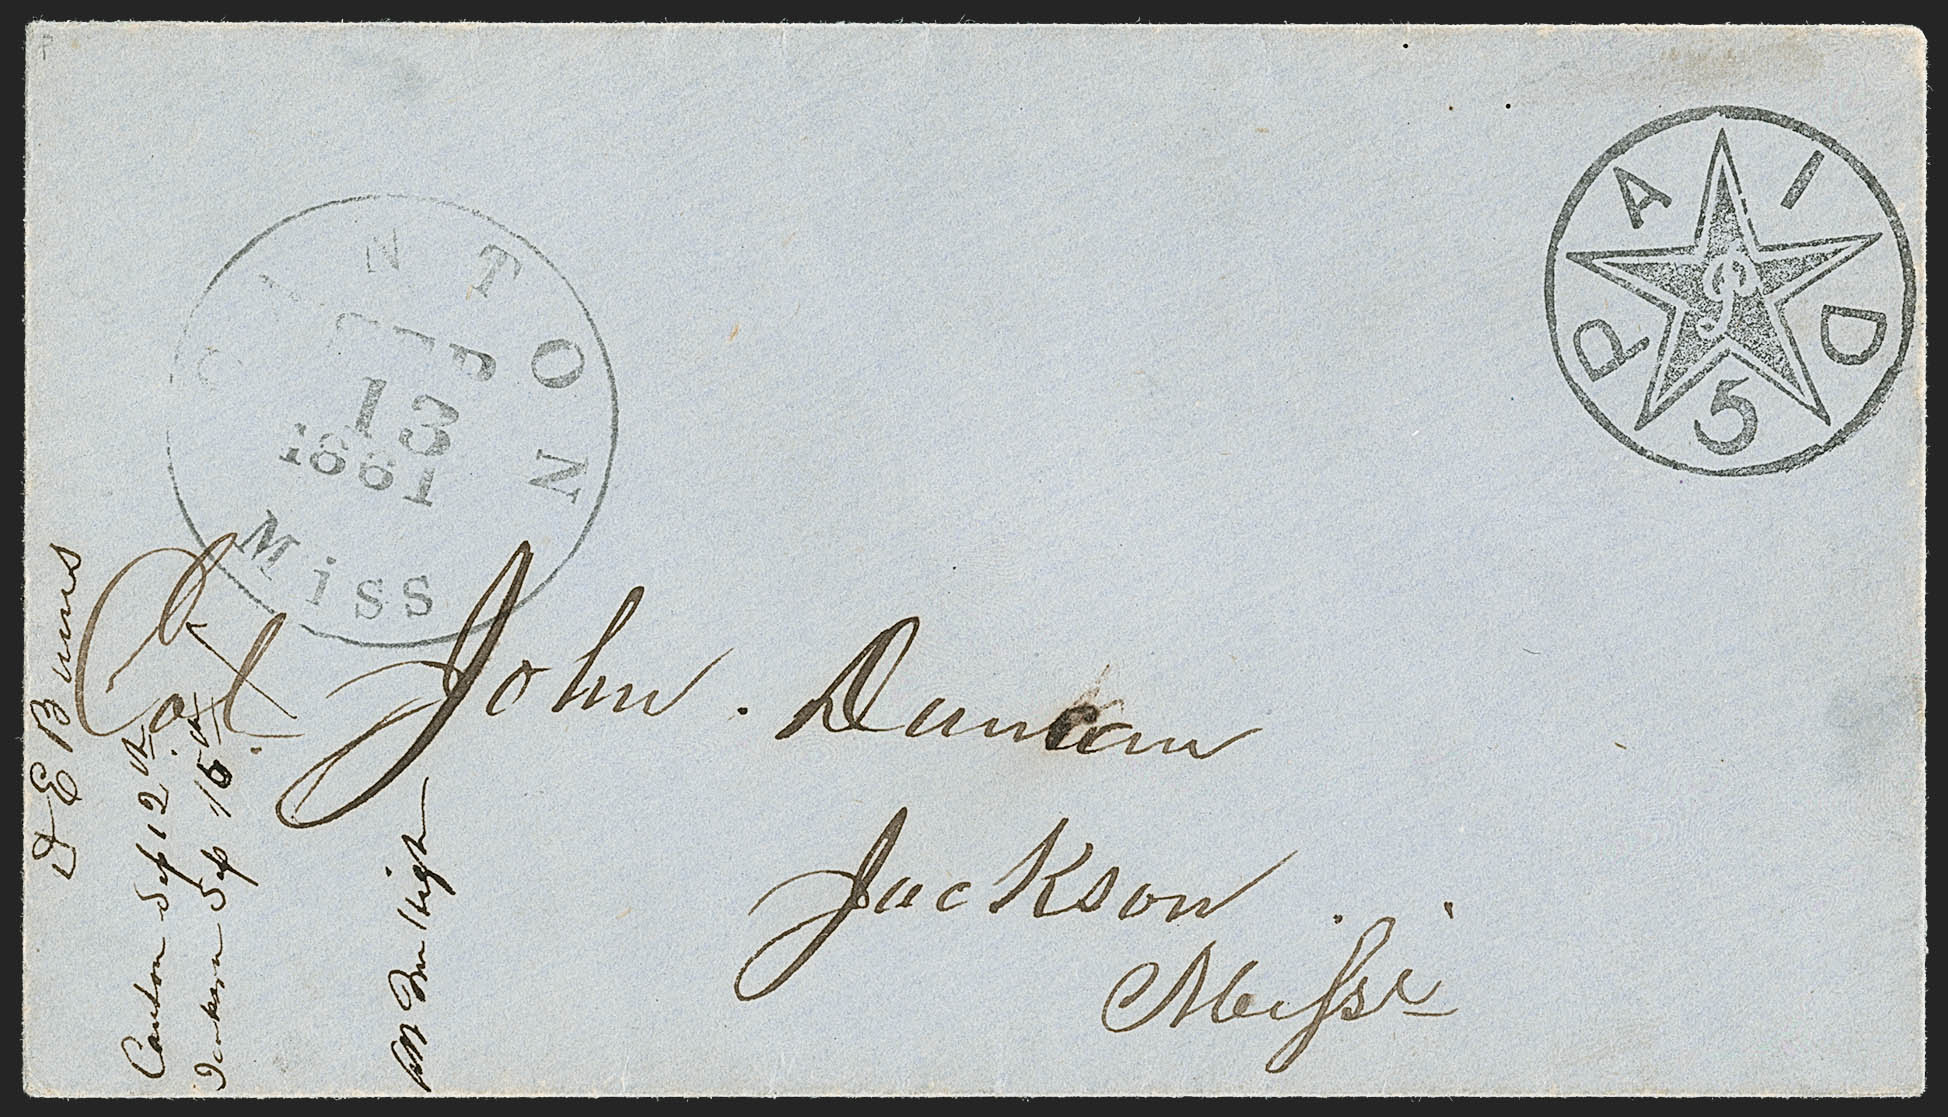 CANTON
SEP
13
1861
Miss
PAID
P
5
Col John. Duncan
Jackson
Missi
D E Burns
Canton Sep 12th
Jackson Sep 15th